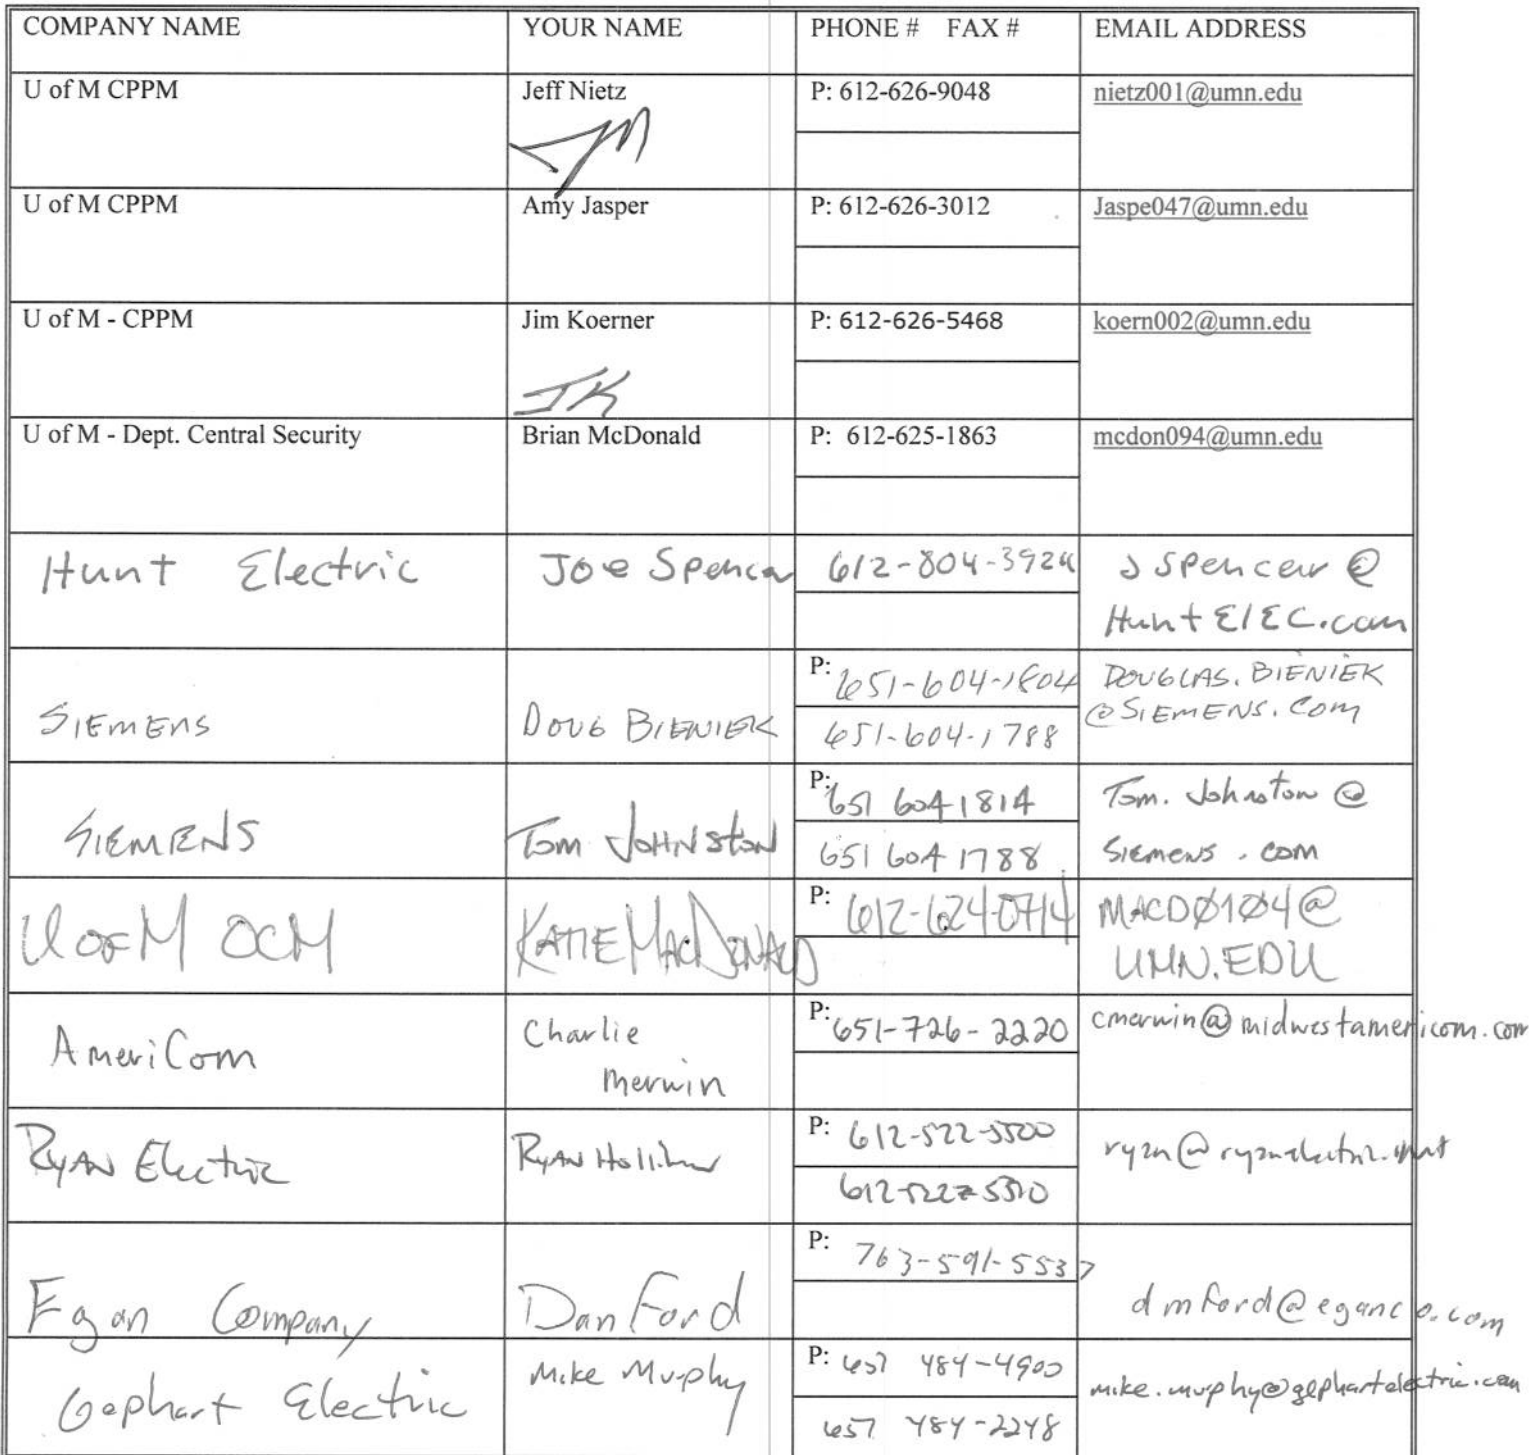 COMPANY NAME YOUR NAME PHONE # FAX # EMAIL ADDRESS
U of M CPPM Jeff Nietz P: 612-626-9048 nietz001@umn.edu
U of M CPPM Amy Jasper P: 612-626-3012 Jaspe047@umn.edu
U of M - CPPM Jim Koerner P: 612-626-5468 koern002@umn.edu
JK
U of M - Dept. Central Security Brian McDonald P: 612-625-1863 mcdon094@umn.edu
Hunt Electric Joe Spencer 612-804-3924 jspencer@
HuntElEC.com
SIEMENS DOUG BIENIEK P: 651-604-1804 DOUGLAS.BIENIEK
651-604-1788 @SIEMENS.COM
SIEMENS TOM JOHNSTON P: 651 604 1814 Tom.Johnston@
651 604 1788 Siemens.com
U OF M OCM KATIE MACDONALD P: 612-624-0714 MACDØ1Ø4@
UMN.EDU
AmeriCom Charlie P: 651-726-2220 cmerwin@midwestamericom.com
Merwin
RYAN Electric RYAN P: 612-522-5500
Egan Company Dan Ford P: 763-591-5537 dmford@eganco.com
Gephart Electric Mike Murphy P: 651 484-4900 mike.murphy@gephartelectric.com
651 484-2248